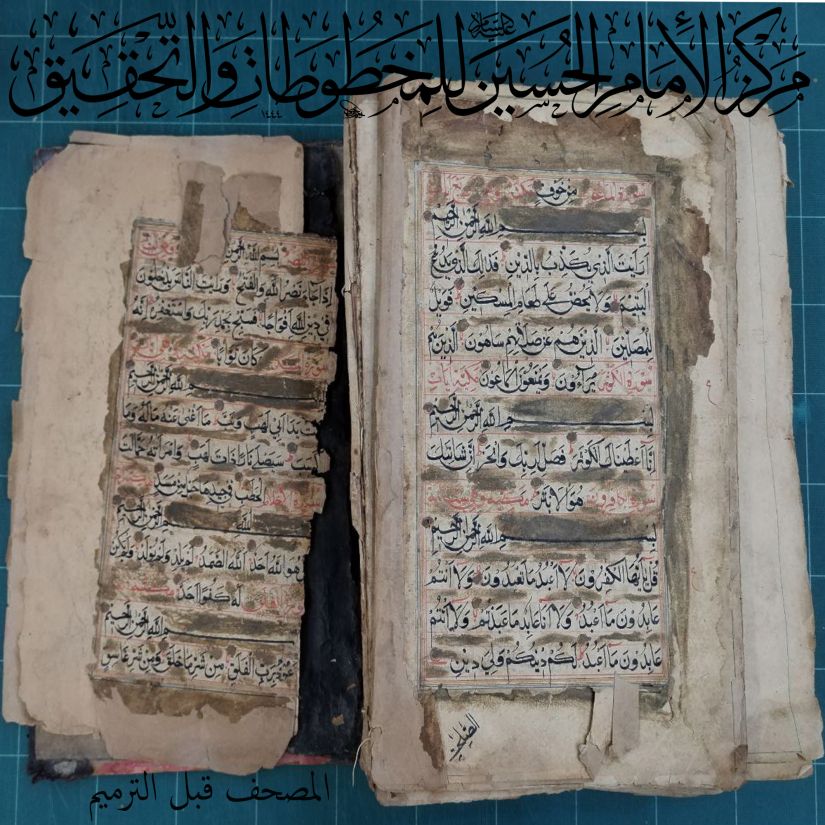 مَركَزُ الإِمَامِ الحُسَينِ عليه السلام لِلمَخطُوطَاتِ وَالتَّحقِيقِ
١٤٤٤
من خوف
بسم الله الرحمن الرحيم
ارايت الذي يكذب بالدين فذلك الذي يدع
اليتيم ولا يحض على طعام المسكين فويل
للمصلين الذين هم عن صلاتهم ساهون الذين هم
يراءون ويمنعون الماعون سورة الكوثر
بسم الله الرحمن الرحيم
انا اعطيناك الكوثر فصل لربك وانحر ان شانئك
هو الابتر
بسم الله الرحمن الرحيم
قل يا ايها الكفرون لا اعبد ما تعبدون ولا انتم
عابدون ما اعبد ولا انا عابد ما عبدتم ولا انتم
عابدون ما اعبد لكم دينكم ولي دين
بسم الله الرحمن الرحيم
اذا جاء نصر الله والفتح ورايت الناس يدخلون
في دين الله افواجا فسبح بحمد ربك واستغفره انه
كان توابا
بسم الله الرحمن الرحيم
تبت يدا ابي لهب وتب ما اغنى عنه ماله وما
سيصلى نارا ذات لهب وامراته حمالت
الحطب في جيدها حبل من مسد
الله الرحمن الرحيم
هو الله احد الله الصمد لم يلد ولم يولد ولم يكن
له كفوا احد
بسم الله الرحمن الرحيم
برب الفلق من شر ما خلق ومن شر غاسق
المصحف قبل الترميم